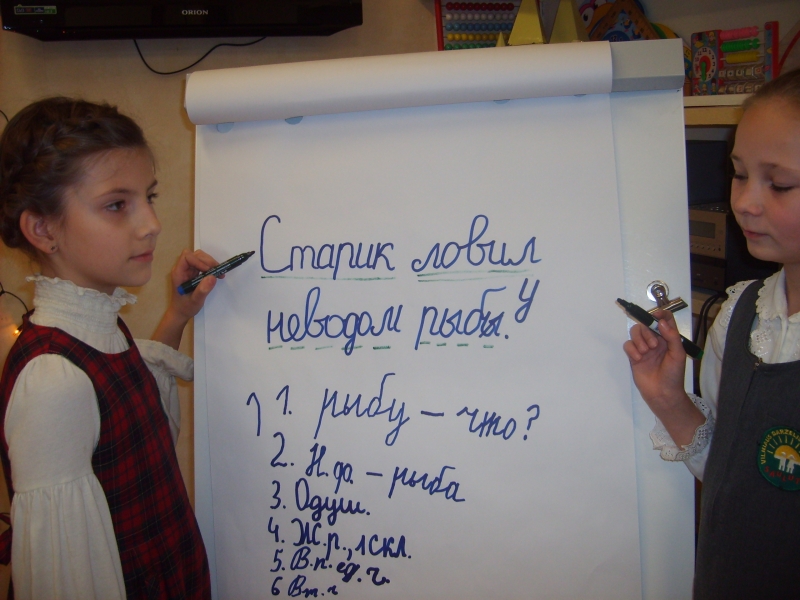 ORION
Старик ловил
неводом рыбы. у
1. рыбу – что?
2. Н.ф. – рыба
3. Одуш.
4. Ж.р., 1 скл.
5. В.п. ед.ч.
6 Вт.
VILNIUS